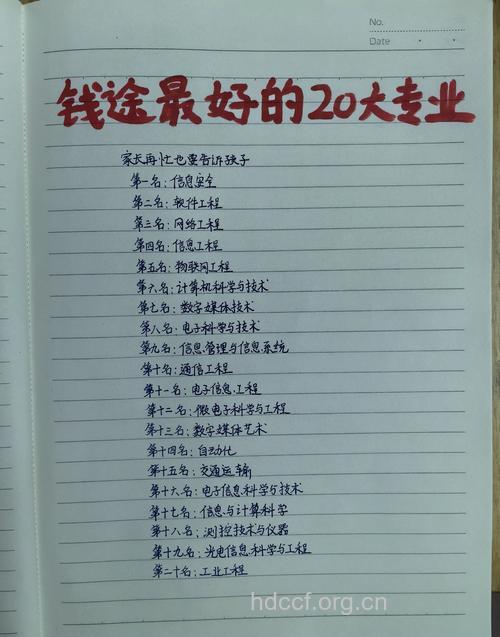 No.
Date
钱途最好的20大专业
家长再忙也要告诉孩子
第一名:信息安全
第二名:软件工程
第三名:网络工程
第四名:信息工程
第五名:物联网工程
第六名:计算机科学与技术
第七名:数字媒体技术
第八名:电子科学与技术
第九名:信息管理与信息系统
第十名:通信工程
第十一名:电子信息工程
第十二名:微电子科学与工程
第十三名:数字媒体艺术
第十四名:自动化
第十五名:交通运输
第十六名:电子信息科学与技术
第十七名:信息与计算科学
第十八名:测控技术与仪器
第十九名:光电信息科学与工程
第二十名:工业工程
hdccf.org.cn